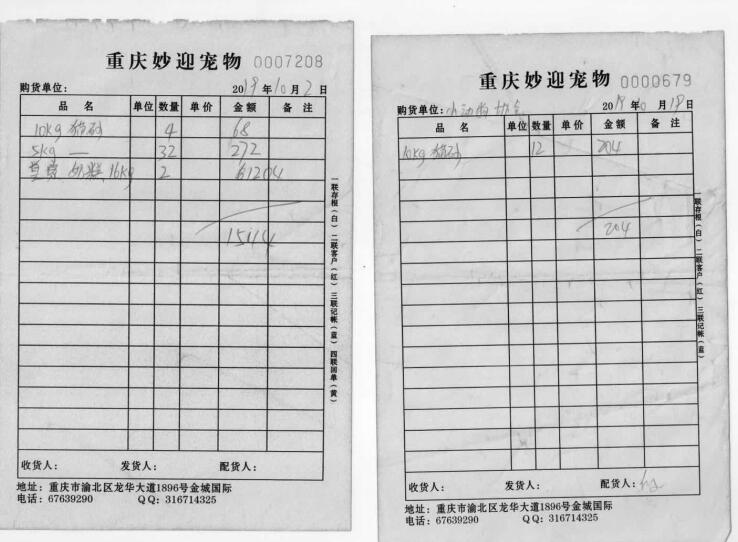 重庆妙迎宠物 0007208
购货单位： 2019年10月2日
品名 单位 数量 单价 金额 备注
10kg 猫砂 4 68
5kg — 32 272
奶糕 16kg 2 1204
1544
一联存根（白）二联客户（红）三联记帐（蓝）四联回单（黄）
收货人： 发货人： 配货人：
地址：重庆市渝北区龙华大道1896号金城国际
电话：67639290 QQ：316714325
重庆妙迎宠物 0000679
购货单位：小动物协会 2019年10月18日
品名 单位 数量 单价 金额 备注
10kg 猫砂 12 204
204
一联存根（白）二联客户（红）三联记帐（蓝）
收货人： 发货人： 配货人：
地址：重庆市渝北区龙华大道1896号金城国际
电话：67639290 QQ：316714325